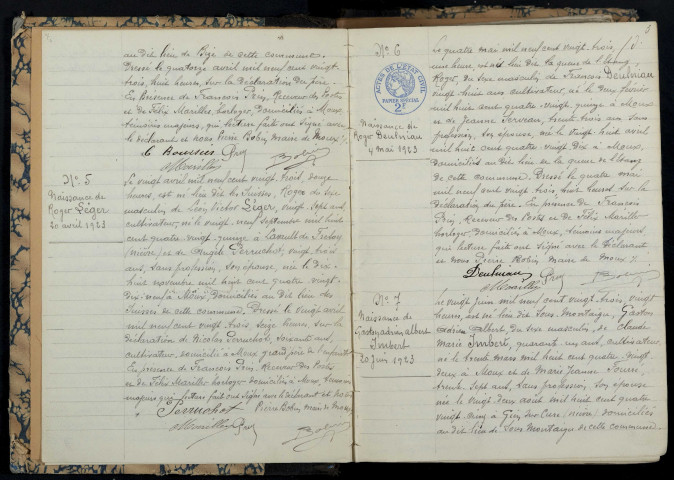 au dit lieu de Bizé de cette commune.
Dressé le quatorze avril mil neuf cent vingt
trois, huit heures, sur la déclaration du père.
En présence de François Prey, Receveur des Postes
et de Félix Marillier horloger, domiciliés à Moux,
témoins majeurs, qui lecture faite ont signé avec
le déclarant et nous Pierre Bobin, Maire de Moux
Prey
Bobin
N° 5
Naissance de
Roger Léger
20 avril 1923
Le vingt avril mil neuf cent vingt trois, douze
heures, est né lieu dit les Guisses, Roger du sexe
masculin de Léon Léger, vingt sept ans,
cultivateur, né le vingt neuf septembre mil huit
cent quatre vingt quinze à
(Nièvre) et de Angèle Perruchot, vingt trois
ans, sans profession, son épouse, née le dix
huit novembre mil huit cent quatre vingt
dix neuf à Moux, domiciliés au dit lieu des
de cette commune. Dressé le vingt avril
mil neuf cent vingt trois seize heures, sur la
déclaration de Nicolas Perruchot, soixante ans,
cultivateur, domicilié à Moux grand père de l'enfant
En présence de François Prey, Receveur des Postes
et de Félix Marillier horloger domiciliés à Moux, témoins
majeurs qui lecture faite ont signé avec le déclarant et nous
Perruchot Pierre Bobin, maire de Moux
Prey Bobin
5
N° 6
ACTES DE L'ÉTAT CIVIL
PAPIER SPÉCIAL
2F
Naissance de
Roger Deulniau
4 mai 1923
Le quatre mai mil neuf cent vingt trois,
une heure, est né lieu dit la queue de l'étang
Roger, du sexe masculin de François Deulniau
vingt huit ans cultivateur, né le dix février
mil huit cent quatre-vingt quinze à Moux
et de Jeanne, trente trois ans sans
profession, son épouse, née le vingt huit avril
mil huit cent quatre vingt dix à Moux,
domiciliés au dit lieu de la queue de l'étang
de cette commune. Dressé le quatre mai
mil neuf cent vingt trois, huit heures sur la
déclaration du père. En présence de François
Prey, Receveur des Postes et de Félix Marillier
horloger, domiciliés à Moux, témoins majeurs,
qui lecture faite ont signé avec le déclarant
et nous Pierre Bobin, Maire de Moux
Deulniau Prey Bobin
N° 7
Naissance de
Gaston, adrien, albert
Imbert
20 juin 1923
Le vingt juin mil neuf cent vingt trois, vingt
heures, est né lieu dit Sous-Montaigu, Gaston
Adrien Albert, du sexe masculin, de Claude
Marie Imbert, quarante un ans, cultivateur,
né le trente mars mil huit cent quatre vingt
deux à Moux et de Marie Jeanne,
trente sept ans, sans profession, son épouse
née le vingt deux août mil huit cent quatre
vingt cinq à Gien sur Cure (Nièvre) domiciliés
au dit lieu de Sous Montaigu de cette commune.